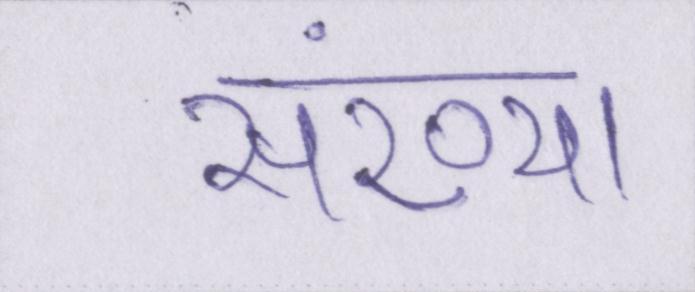 संख्या